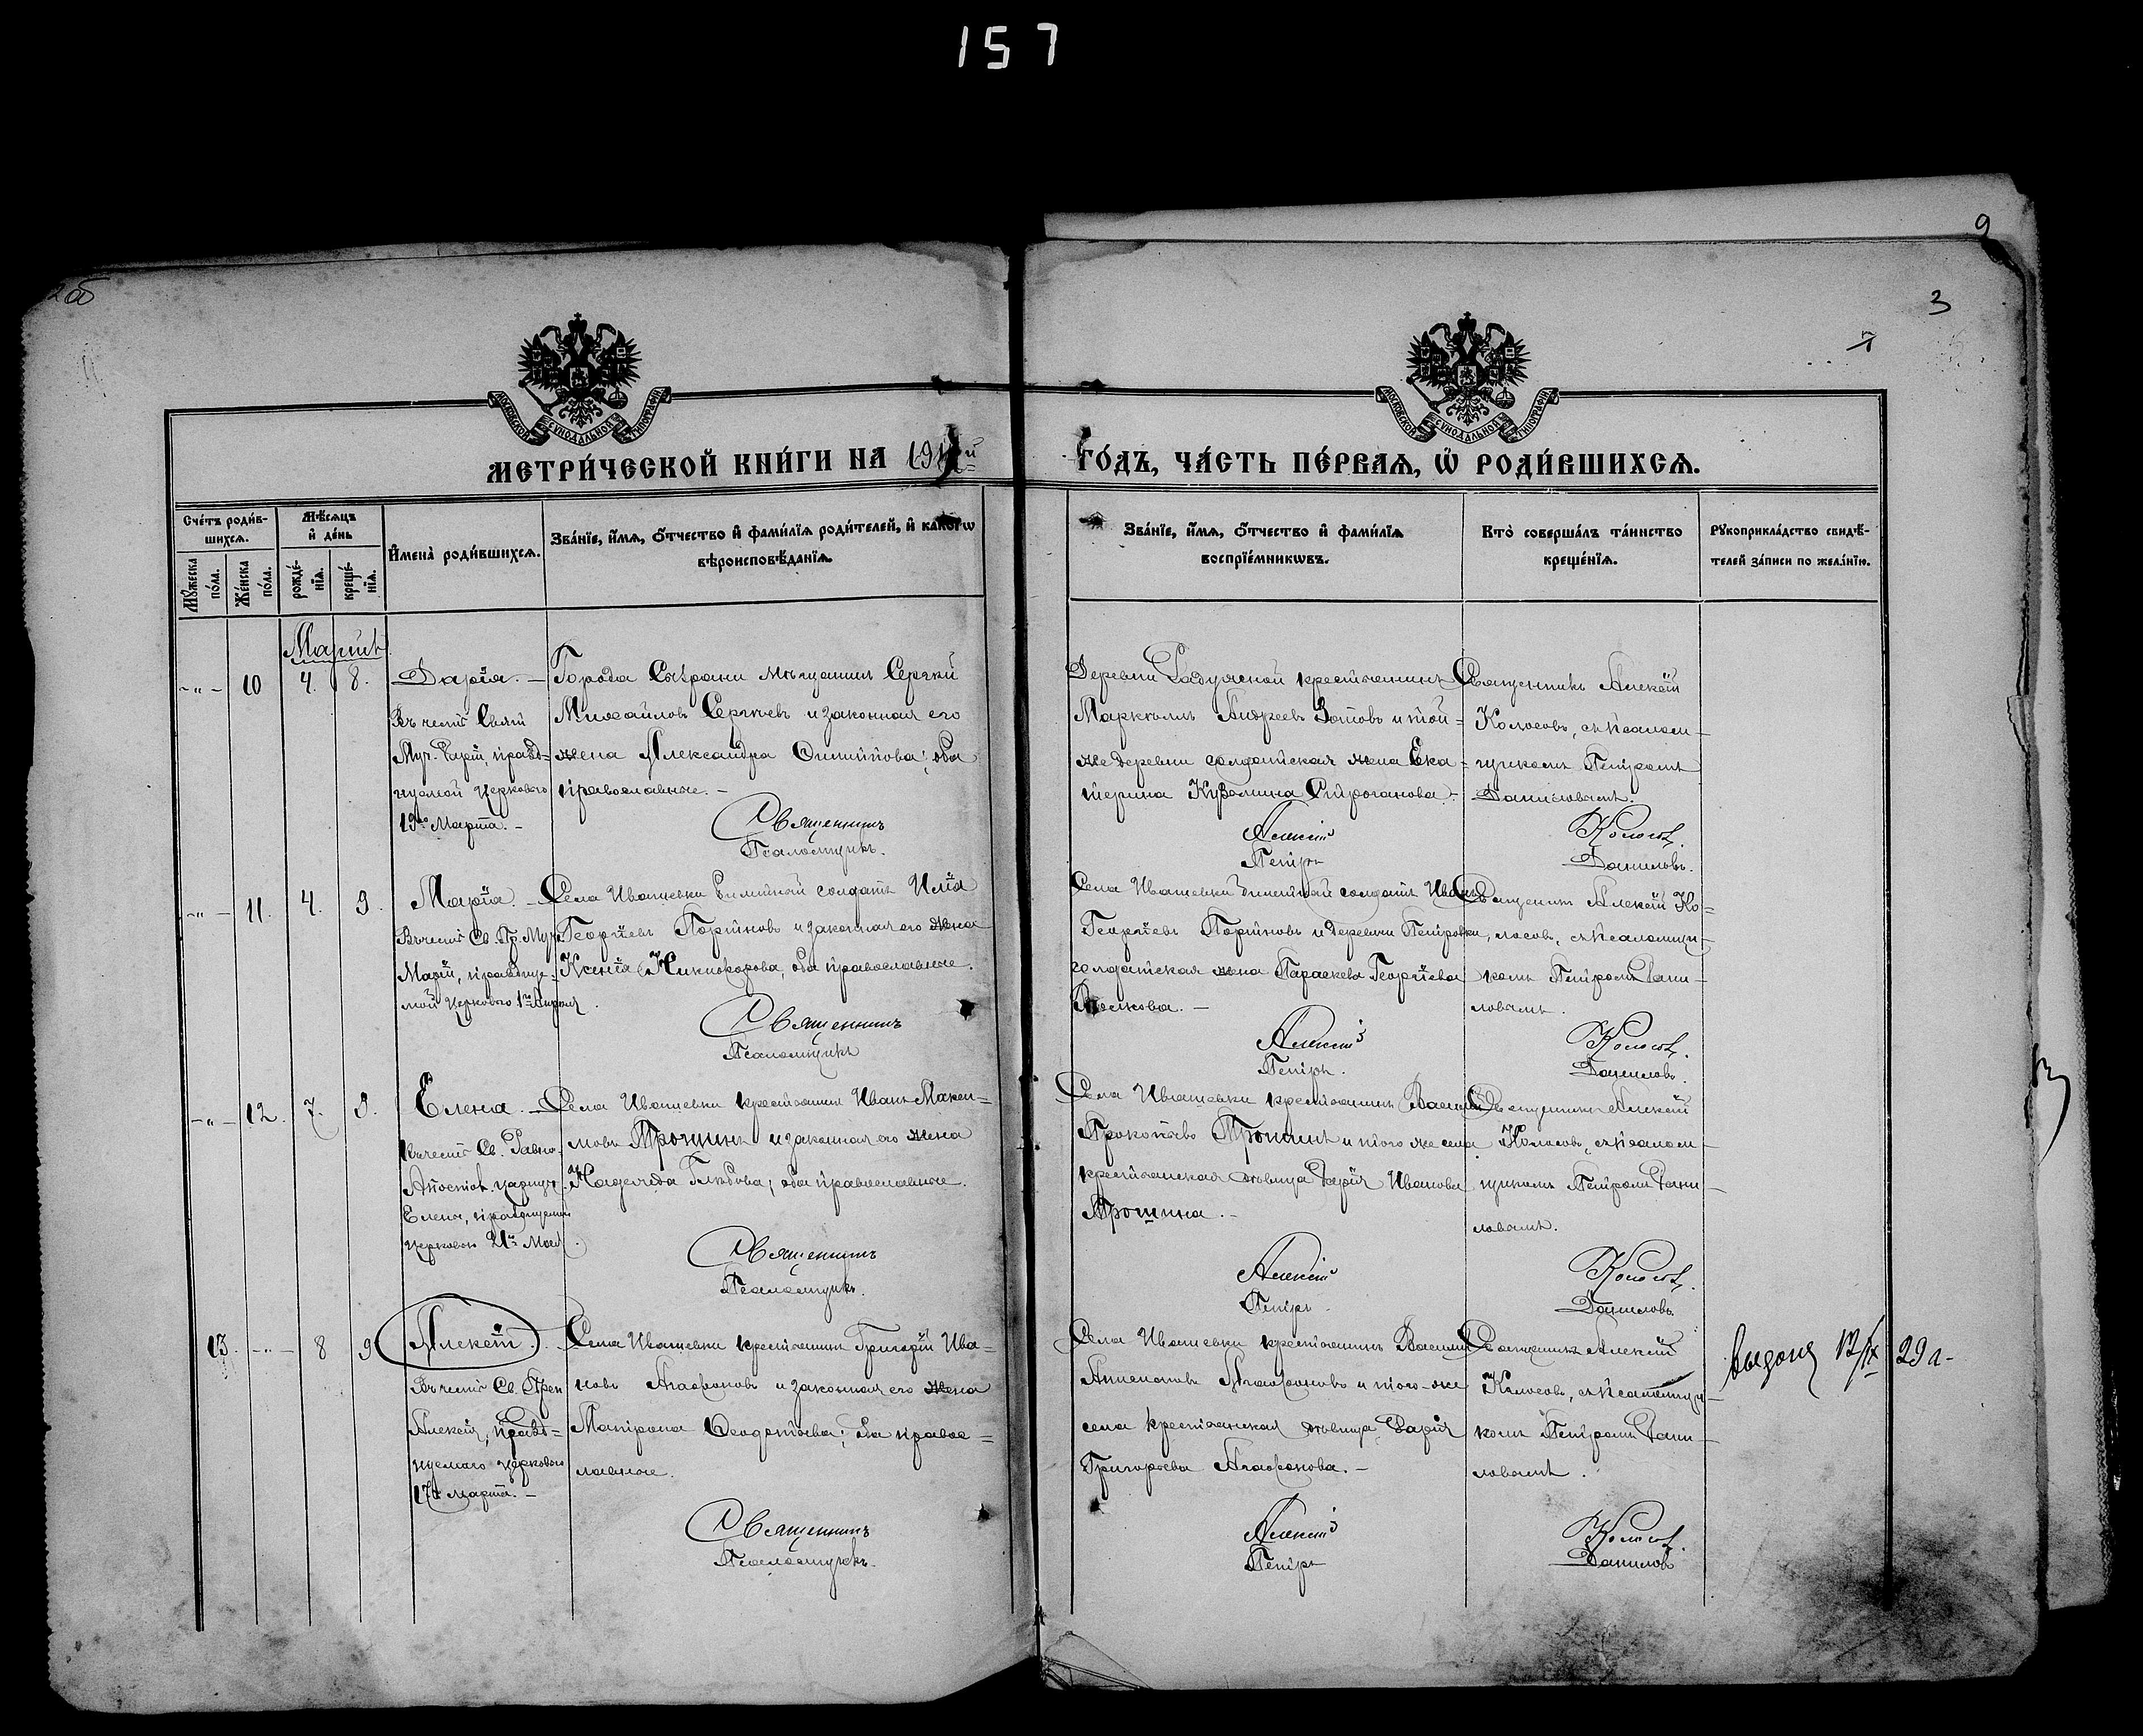 157
9
2об
3
7
МОСКОВСКОЙ СѴНОДАЛЬНОЙ ТИПОГРАФІИ
МОСКОВСКОЙ СѴНОДАЛЬНОЙ ТИПОГРАФІИ
МЕТРИ́ЧЕСКОЙ КНИ́ГИ НА 191 й ГО́ДЪ, ЧА́СТЬ ПЕ́РВАѦ, Ѡ҆ РОДИ́ВШИХСѦ.
Сче́тъ роди́в-
шихсѧ.
Мꙋ́жеска
по́ла.
Же́нска
по́ла.
Мѣ́сѧцъ
и҆ де́нь
рожде́-
нїѧ.
креще́-
нїѧ.
И҆мена̀ роди́вшихсѧ.
Зва́нїе, и҆́мѧ, ѻ҆́тчество и҆ фами́лїѧ роди́телей, и҆ како́гѡ
вѣроисповѣ́данїѧ.
Зва́нїе, и҆́мѧ, ѻ҆́тчество и҆ фами́лїѧ
воспрїе́мникѡвъ.
Кто̀ соверша́лъ та́инство
креще́нїѧ.
Рꙋкоприкла́дство свидѣ́-
телей за́писи по жела́нїю.
Мартъ
-„- 10 4. 8.
Дарія. -
Въ честь Свят
Муч. Даріи, празд=
нуемой Церковію
19го Марта. -
Города Сызрани мѣщанинъ Сергѣй
Михайловъ Сергѣевъ и законная его
жена Александра Филиппова; оба
православные. -
Священникъ
Псаломщикъ.
Деревни крестьянинъ
Андреевъ Зотовъ и той=
же деревни солдатская жена Ека=
терина Кузьмина
Алексій
Петръ
Священникъ Алексій
Колосовъ, съ псалом-
щикомъ Петромъ
Даниловымъ.
Колосовъ.
Даниловъ.
-„- 11. 4. 9.
Марія. -
Въ честь Св. Пр. Муч.
Маріи, празднуе-
мой Церковію 1го Апрѣля.
Села Ивашевки билетный солдатъ Илія
Георгіевъ и законная его жена
Ксенія Никифорова, оба православные.
Священникъ
Псаломщикъ
Села Ивашевки билетный солдатъ Иванъ
Георгіевъ и деревни Петровки,
солдатская жена Параскева Георгіева
Волкова. -
Алексій
Петръ.
Священникъ Алексій Ко=
лосовъ, съ псаломщи-
комъ Петромъ Дани-
ловымъ.
Колосовъ.
Даниловъ.
-„- 12. 7. 9.
Елена. -
Въ честь Св. Равно-
Апостол. царицы
Елены, празднуемой
Церковію 21го Мая.
Села Ивашевки крестьянинъ Иванъ Макси=
мовъ Трошинъ и законная его жена
Надежда Глѣбова; оба православные.
Священникъ
Псаломщикъ.
Села Ивашевки крестьянинъ Василій
Прокопьевъ Трошинъ и того же села
крестьянская дѣвица Дарія Иванова
Трошина. -
Алексій
Петръ.
Священникъ Алексій
Колосовъ, съ псалом-
щикомъ Петромъ Дани-
ловымъ.
Колосовъ.
Даниловъ.
13. -„- 8 9
Алексій.
Въ честь Св. Преп
Алексія, празд=
нуемаго Церковію
17го Марта. -
Села Ивашевки крестьянинъ Григорій Ива=
новъ Агафоновъ и законная его жена
Матрона Ѳеодотьева; оба правос=
лавные.
Священникъ
Псаломщикъ.
Села Ивашевки крестьянинъ Василій
Агафоновъ и того-же
села крестьянская дѣвица Дарія
Григорьева Агафонова. -
Алексій
Петръ
Священникъ Алексій
Колосовъ, съ псаломщи-
комъ Петромъ Дани-
ловымъ.
Колосовъ.
Даниловъ
29 г.